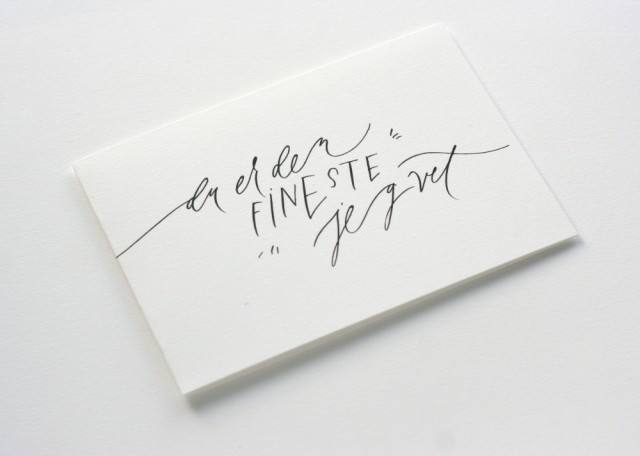 du er den
FINESTE
jeg vet